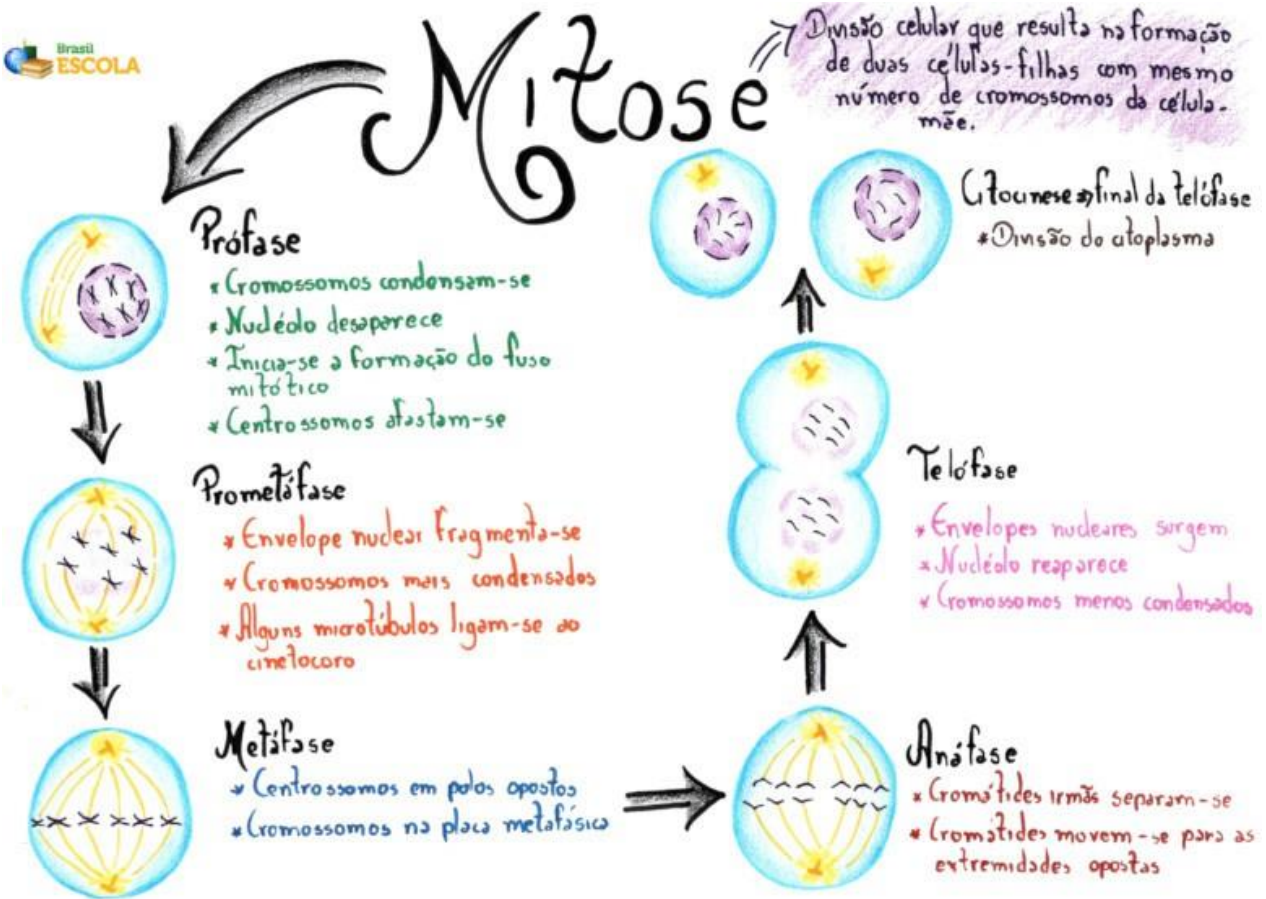 Brasil
ESCOLA
Mitose
Divisão celular que resulta na formação
de duas células-filhas com mesmo
número de cromossomos da célula-
mãe.
Prófase
* Cromossomos condensam-se
* Nucléolo desaparece
* Inicia-se a formação do fuso
mitótico
* Centrossomos afastam-se
Prometáfase
* Envelope nuclear fragmenta-se
* Cromossomos mais condensados
* Alguns microtúbulos ligam-se ao
cinetocoro
Metáfase
* Centrossomos em polos opostos
* Cromossomos na placa metafásica
Anáfase
* Cromátides irmãs separam-se
* Cromátides movem-se para as
extremidades opostas
Telófase
* Envelopes nucleares surgem
* Nucléolo reaparece
* Cromossomos menos condensados
Citocinese ⇒ final da telófase
* Divisão do citoplasma